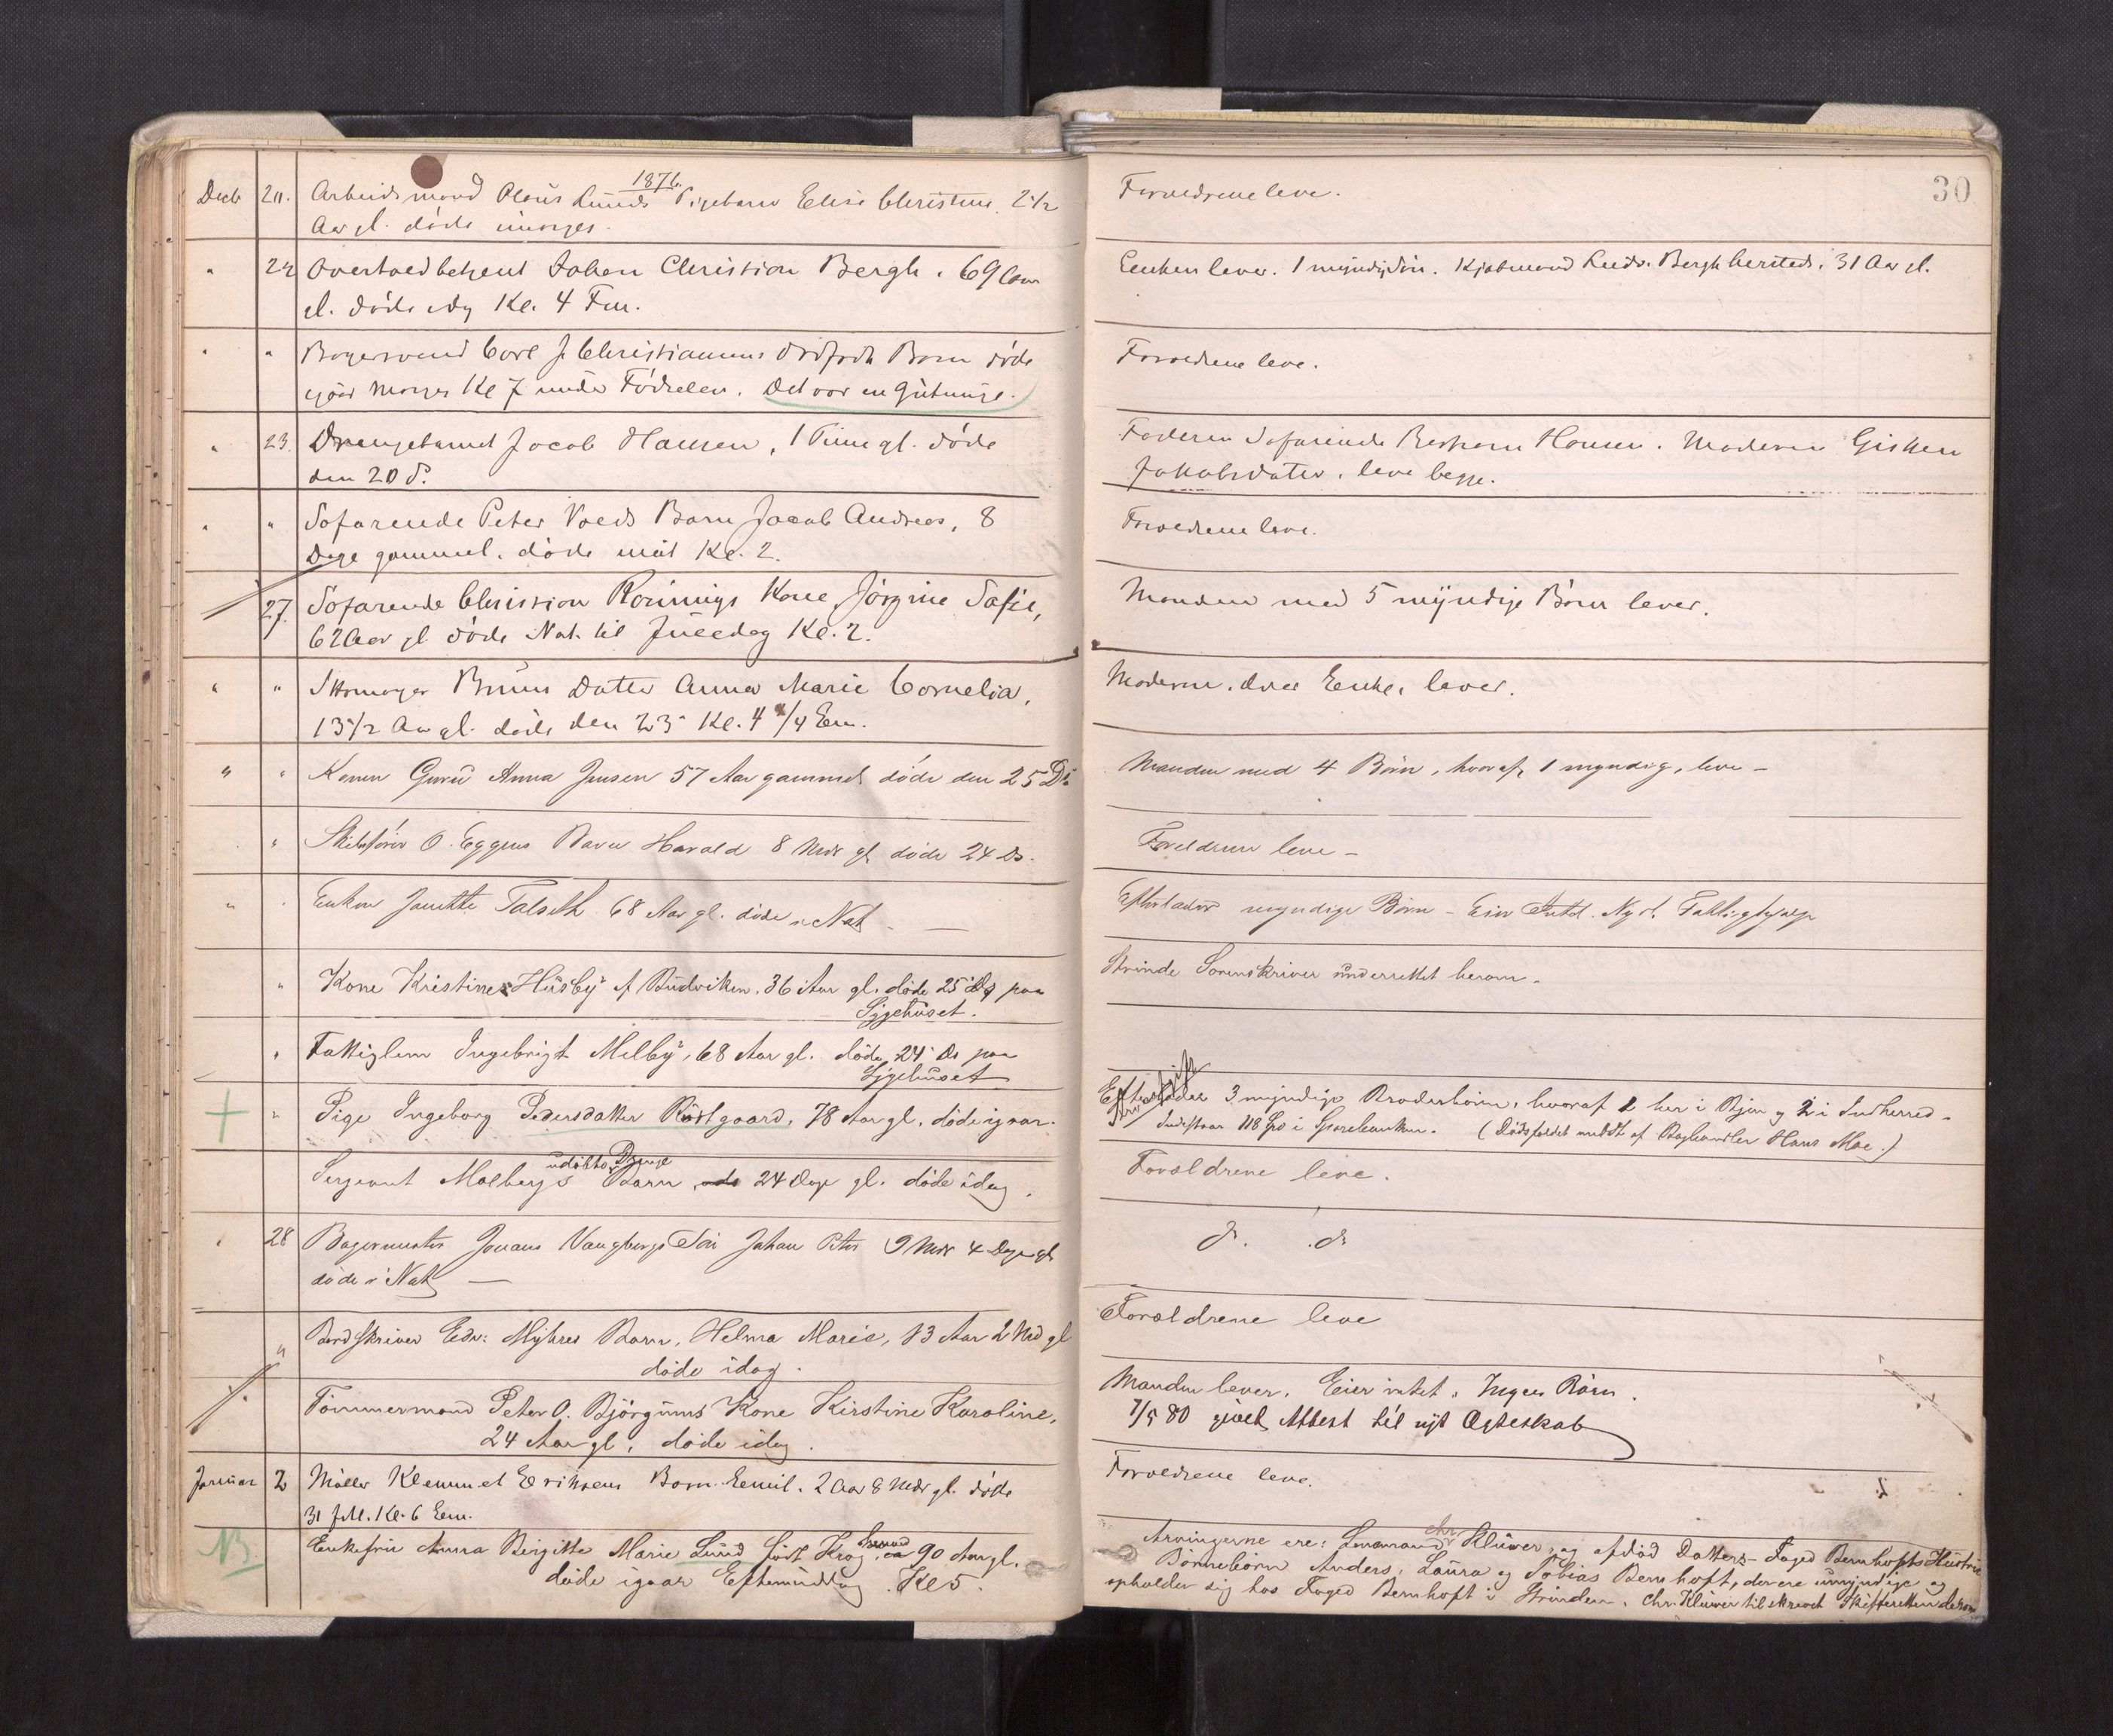 1876.
30
Decb 20. Arbeidsmand Olaus Lunds Pigebarn Elise Christine, 2 1/2
Aar gl. døde imorges.
Forældrene leve.
" 22 Johan Christian Bergh. 69 Aar
gl. døde idag Kl. 4 Fm.
Enken lever. 1 myndig Søn. Kjøbmand Ludv. Bergh hersteds, 31 Aar gl.
" " Bagersvend Carl J. Christiansens dødfødte Barn døde
igaar Morges Kl 7 under Fødselen. Det var en Gutunge.
Forældrene leve.
" 23. Drengebarnet Jacob Hansen, 1 Time gl. døde
den 20 d.
Faderen Søfarende Hansen. Moderen Gisken
Jakobsdatter, leve begge.
" " Søfarende Peter Voeds Barn Jacob Andreas, 8
Dage gammel, døde inat Kl. 2.
Forældrene leve.
27. Søfarende Christian Rønnings Kone Jørgine Sofie,
62 Aar gl. døde Nat til Juledag Kl. 2.
Manden med 5 myndige Børn lever.
" " Skomager Bruns Datter Anna Marie Cornelia,
13 1/2 Aar gl. døde den 23 Kl. 4 /4 Em.
Moderen, der er Enke, lever.
" " Konen Guru Anna Jensen 57 Aar gammel døde den 25 Ds
Manden med 4 Børn, hvoraf 1 myndig, leve -
" Skibsfører O. Eggens Barn Harald 8 Mdr gl døde 24 Ds.
Forældrene leve -
" " Enken Janette Talseth 68 Aar gl. døde i Nat. -
Efterlader myndige Børn - Eier Intet. Nyd. Fattighjælp
" Kone Kristine Husby af Budviken. 36 Aar gl. døde 25 Ds paa
Sygehuset.
Strinde Sorenskriver underrettet herom.
" Fattiglem Ingebrigt Melby, 68 Aar gl. døde 24 Ds paa
Sygehuset
" Pige Ingeborg Pedersdatter Rostgaard, 78 Aar gl. døde igaar.
Efterlader 3 myndige Broderbørn, hvoraf 1 her i Byen og 2 i Indherred -
Indestaar 118 i Sparebanken. (Dødsfaldet meldt af Boghandler Hans Moe.)
udøbte Drenge
Sergeant Molbergs Barn 24 Dage gl. døde idag.
Forældrene leve.
" 28 Bagermester Jonans Vangbergs Søn Johan Peter 9 Mdr 4 Dage gl
døde i Nat -
do. do
" Bordskriver Edv. Myhres Barn, Helma Marie, 13 Aar 2 Md gl
døde idag.
Forældrene leve
Tømmermand Peter O. Bjørgums Kone Kirstine Karoline,
24 Aar gl, døde idag.
Manden lever. Eier intet. Ingen Børn.
7/5 80 givet Attest til nyt Ægteskab
Januar 2 Møller Klemmet Eriksens Barn Emil. 2 Aar 8 Mdr gl. døde
31 f.M. Kl. 6 Em.
Forældrene leve.
NB Enkefru Anna Birgitte Marie Lund født Krog, 90 Aar gl.
døde igaar Eftermiddag Kl 5.
Arvingerne ere: Chr. Klüwer, og afdød Datters Foged Bernhofts Hustrues
Børnebørn Anders, Laura og Tobias Bernhoft, der ere umyndige og
opholder sig hos Foged Bernhoft i Strinden. Chr. Klüwer tilskrevet Skifteretten derom